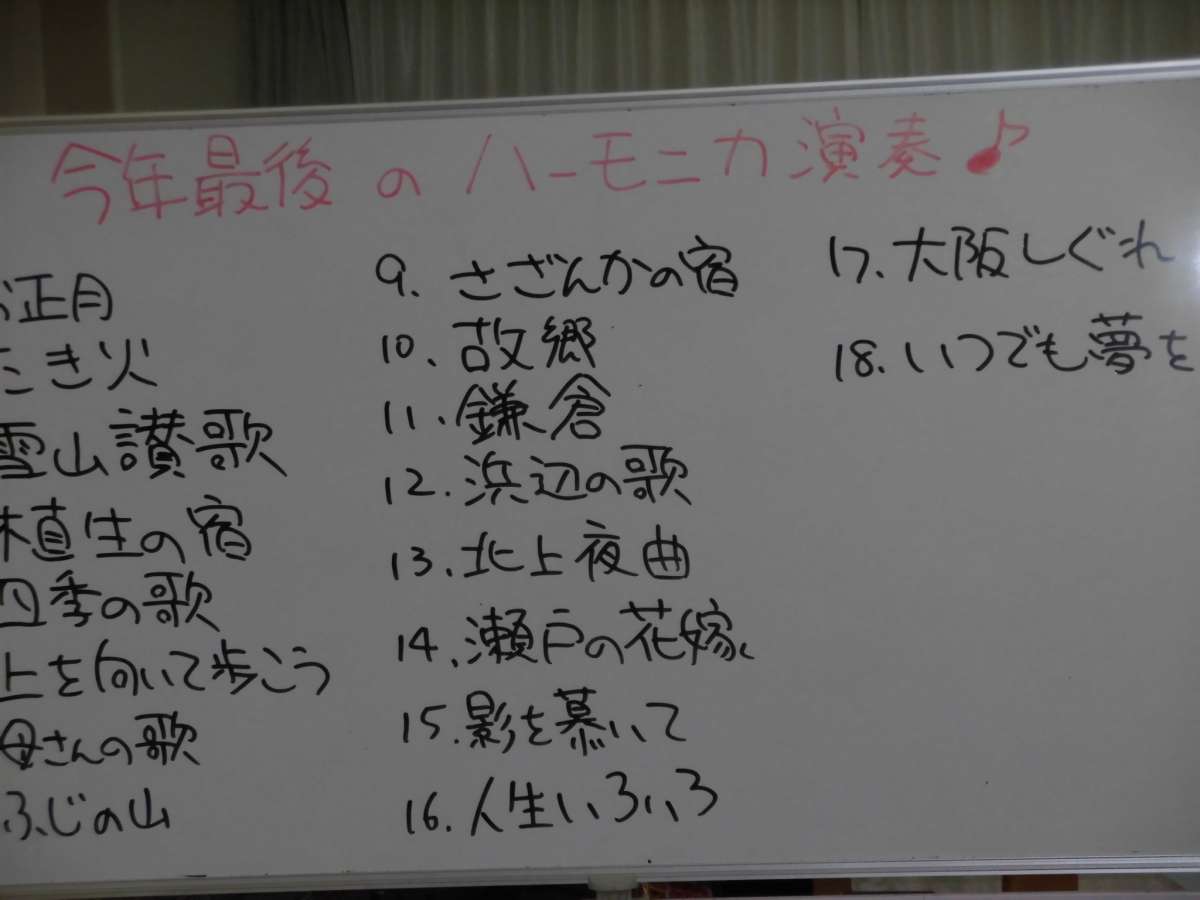 今年最後のハーモニカ演奏♪
お正月
たき火
雪山讃歌
埴生の宿
四季の歌
上を向いて歩こう
母さんの歌
ふじの山
9. さざんかの宿
10、故郷
11.鎌倉
12.浜辺の歌
13.北上夜曲
14.瀬戸の花嫁
15.影を慕いて
16.人生いろいろ
17.大阪しぐれ
18.いつでも夢を